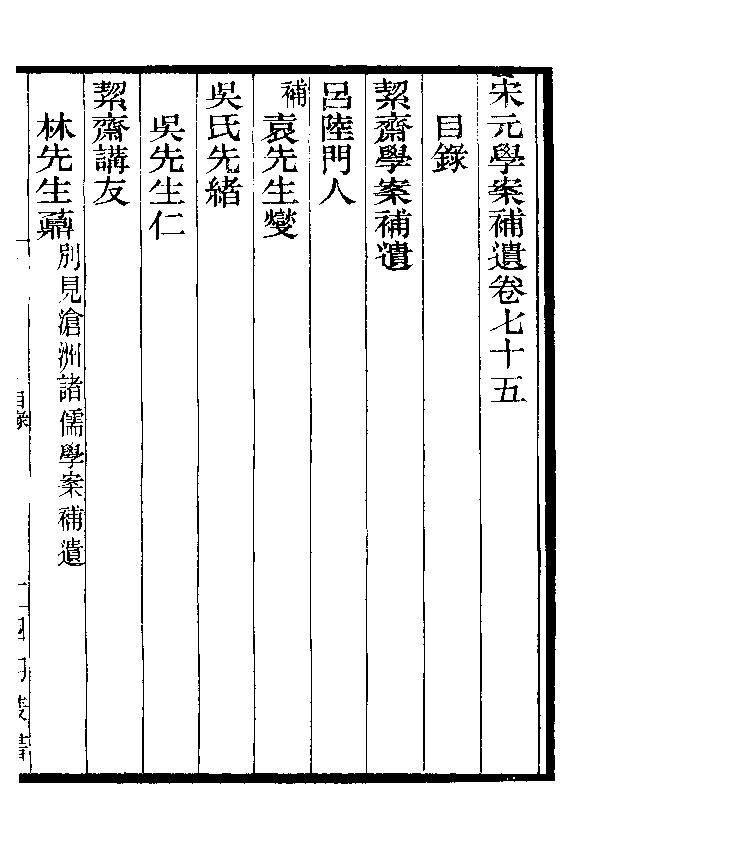 宋元學案補遺卷七十五
目錄
絜齋學案補遺
呂陸門人
補袁先生燮
吳氏先緒
吳先生仁
絜齋講友
林先生鼒別見滄洲諸儒學案補遺
目錄